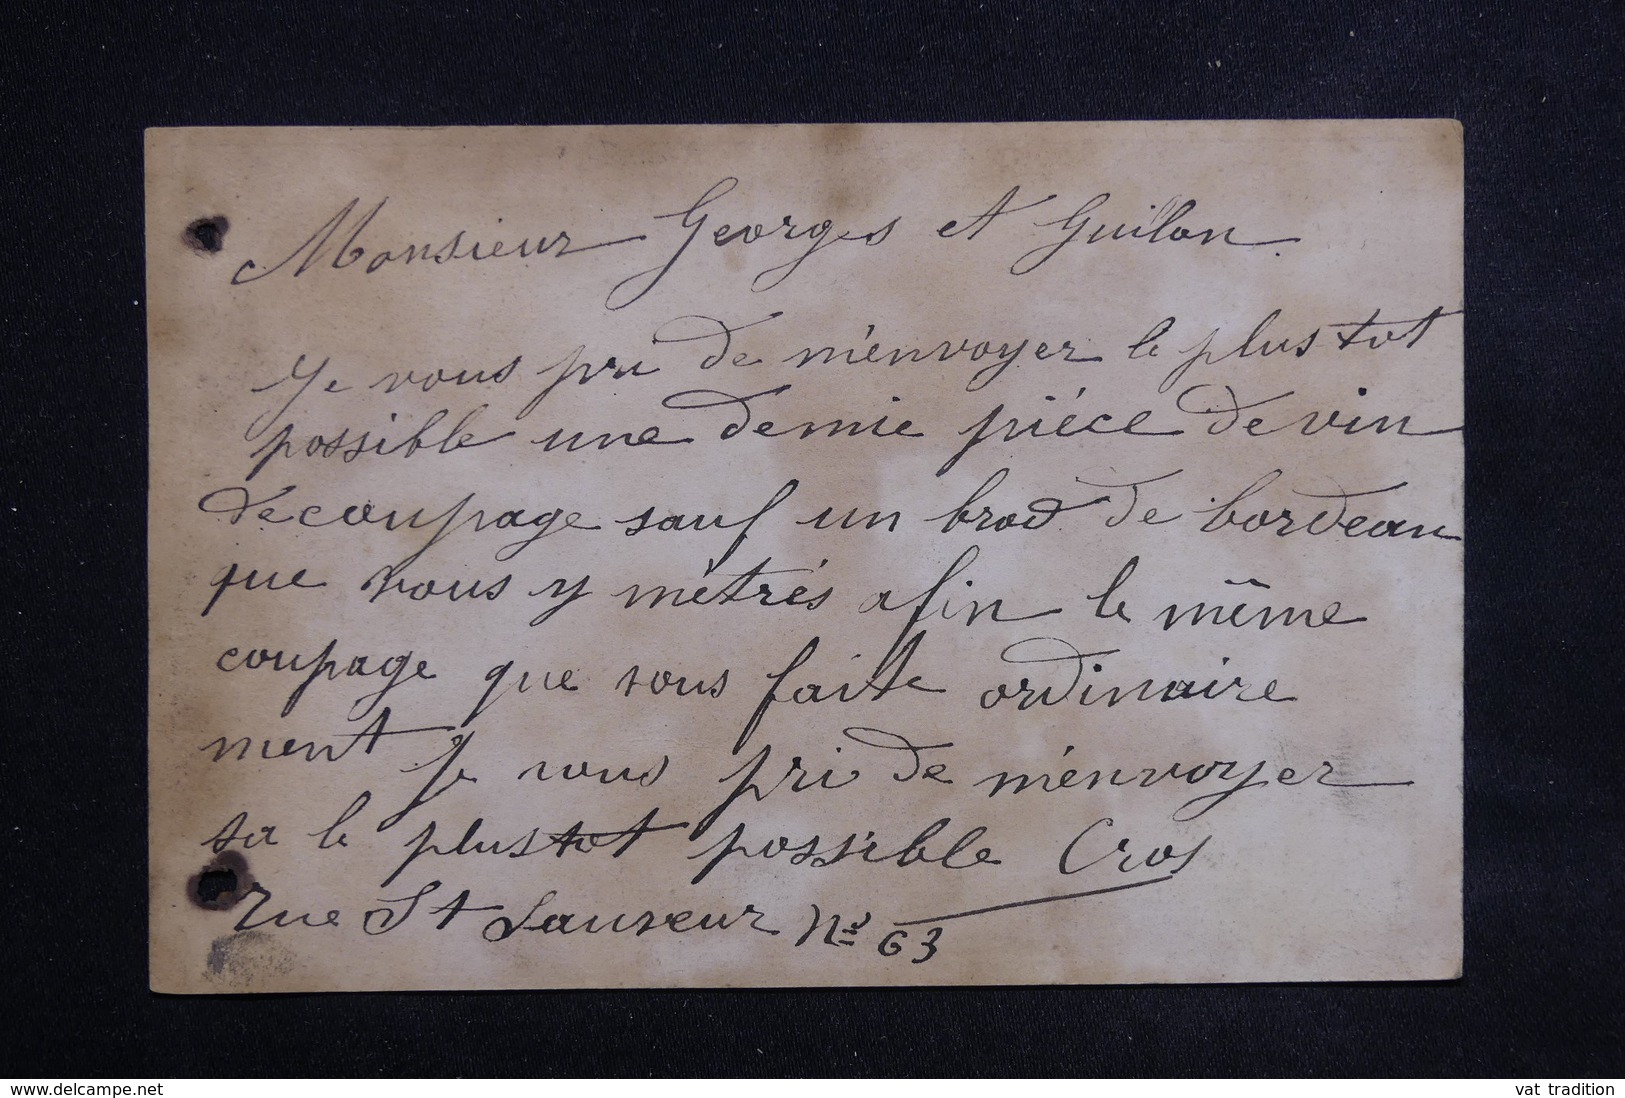 Monsieur Georges et Guillon
Je vous pri de m'envoyer le plus tot
possible une demie piéce de vin
decoupage sauf un brod de bordeau
que vous y métrés afin le même
coupage que vous faite ordinaire
ment Je vous pri de m'envoyer
sa le plus tot possible Cros
rue St Sauveur No 63
www.delcampe.net
vat tradition